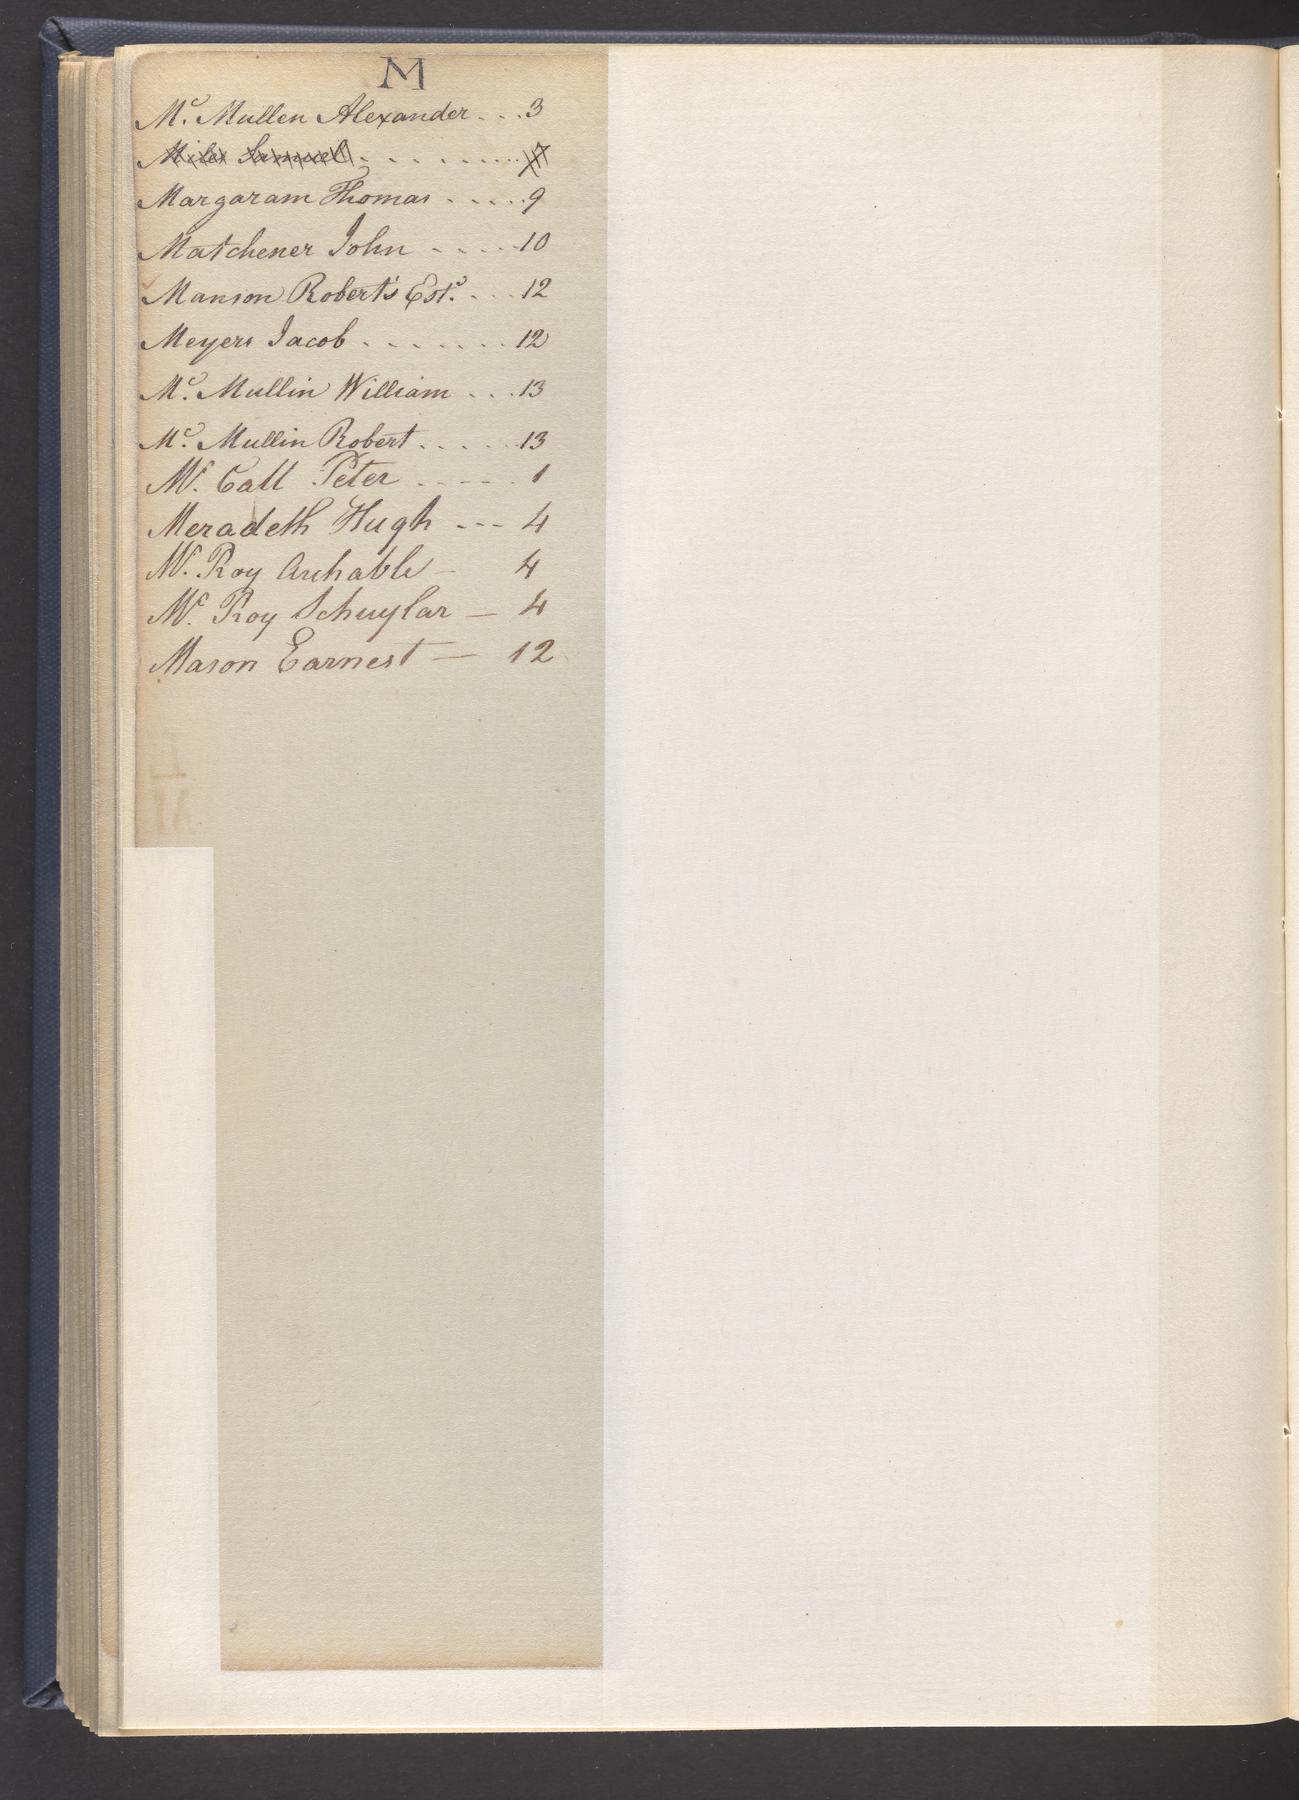 M
Mc. Mullen Alexander . . . 3
Miles Samuel . . . . . . . . . . 17
Margaram Thomas . . . . . 9
Matchener John . . . . . 10
Manson Robert's Est.e . . . 12
Meyers Jacob . . . . . . . 12
Mc. Mullin William . . . 13
Mc. Mullin Robert . . . . . 13
Mc. Call Peter . . . . . 1
Meradeth Hugh - - - 4
Mc. Roy Archable — 4
Mc. Roy Schuylar — 4
Mason Earnest — 12